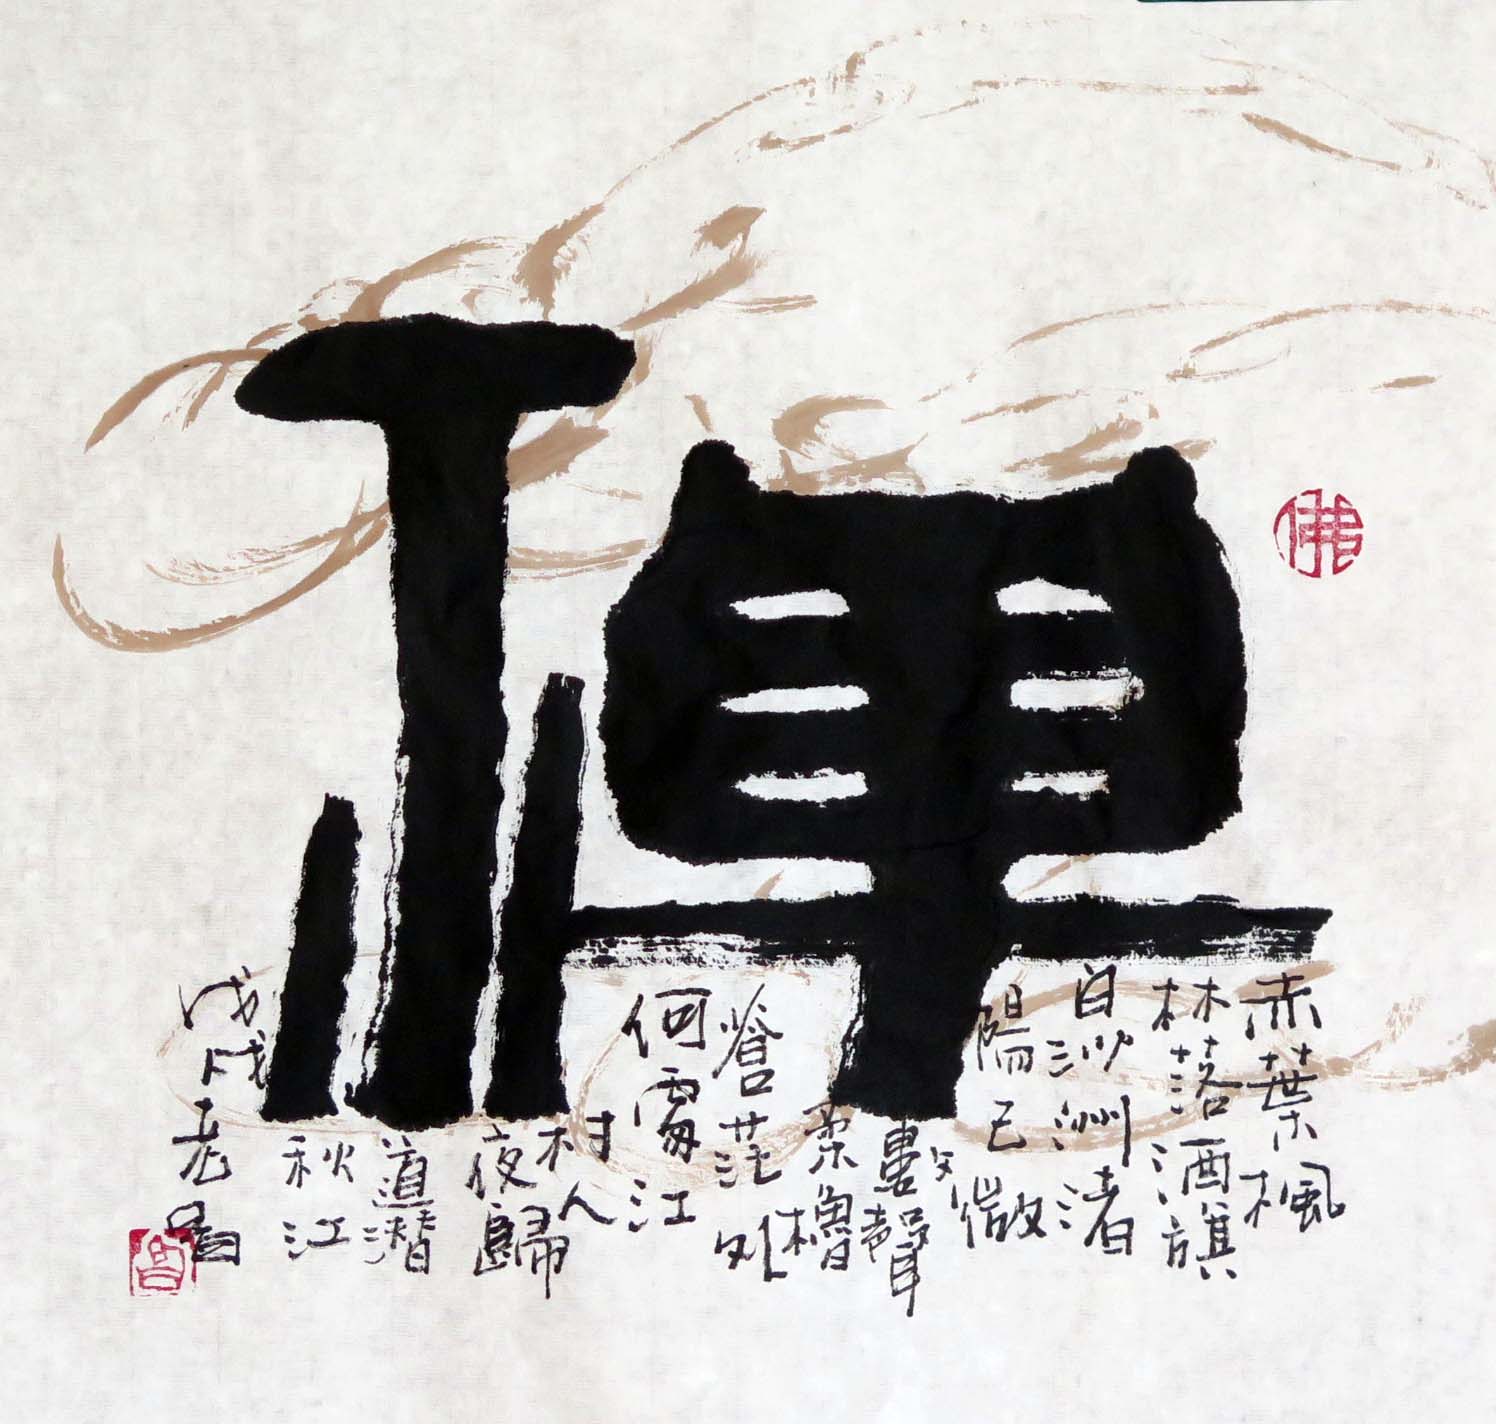 禪
佛
赤葉楓
林落酒旗
白沙洲渚
陽已微
數聲
柔櫓
蒼茫外
何處江
村人
夜歸
道潜
秋江
戊戌老